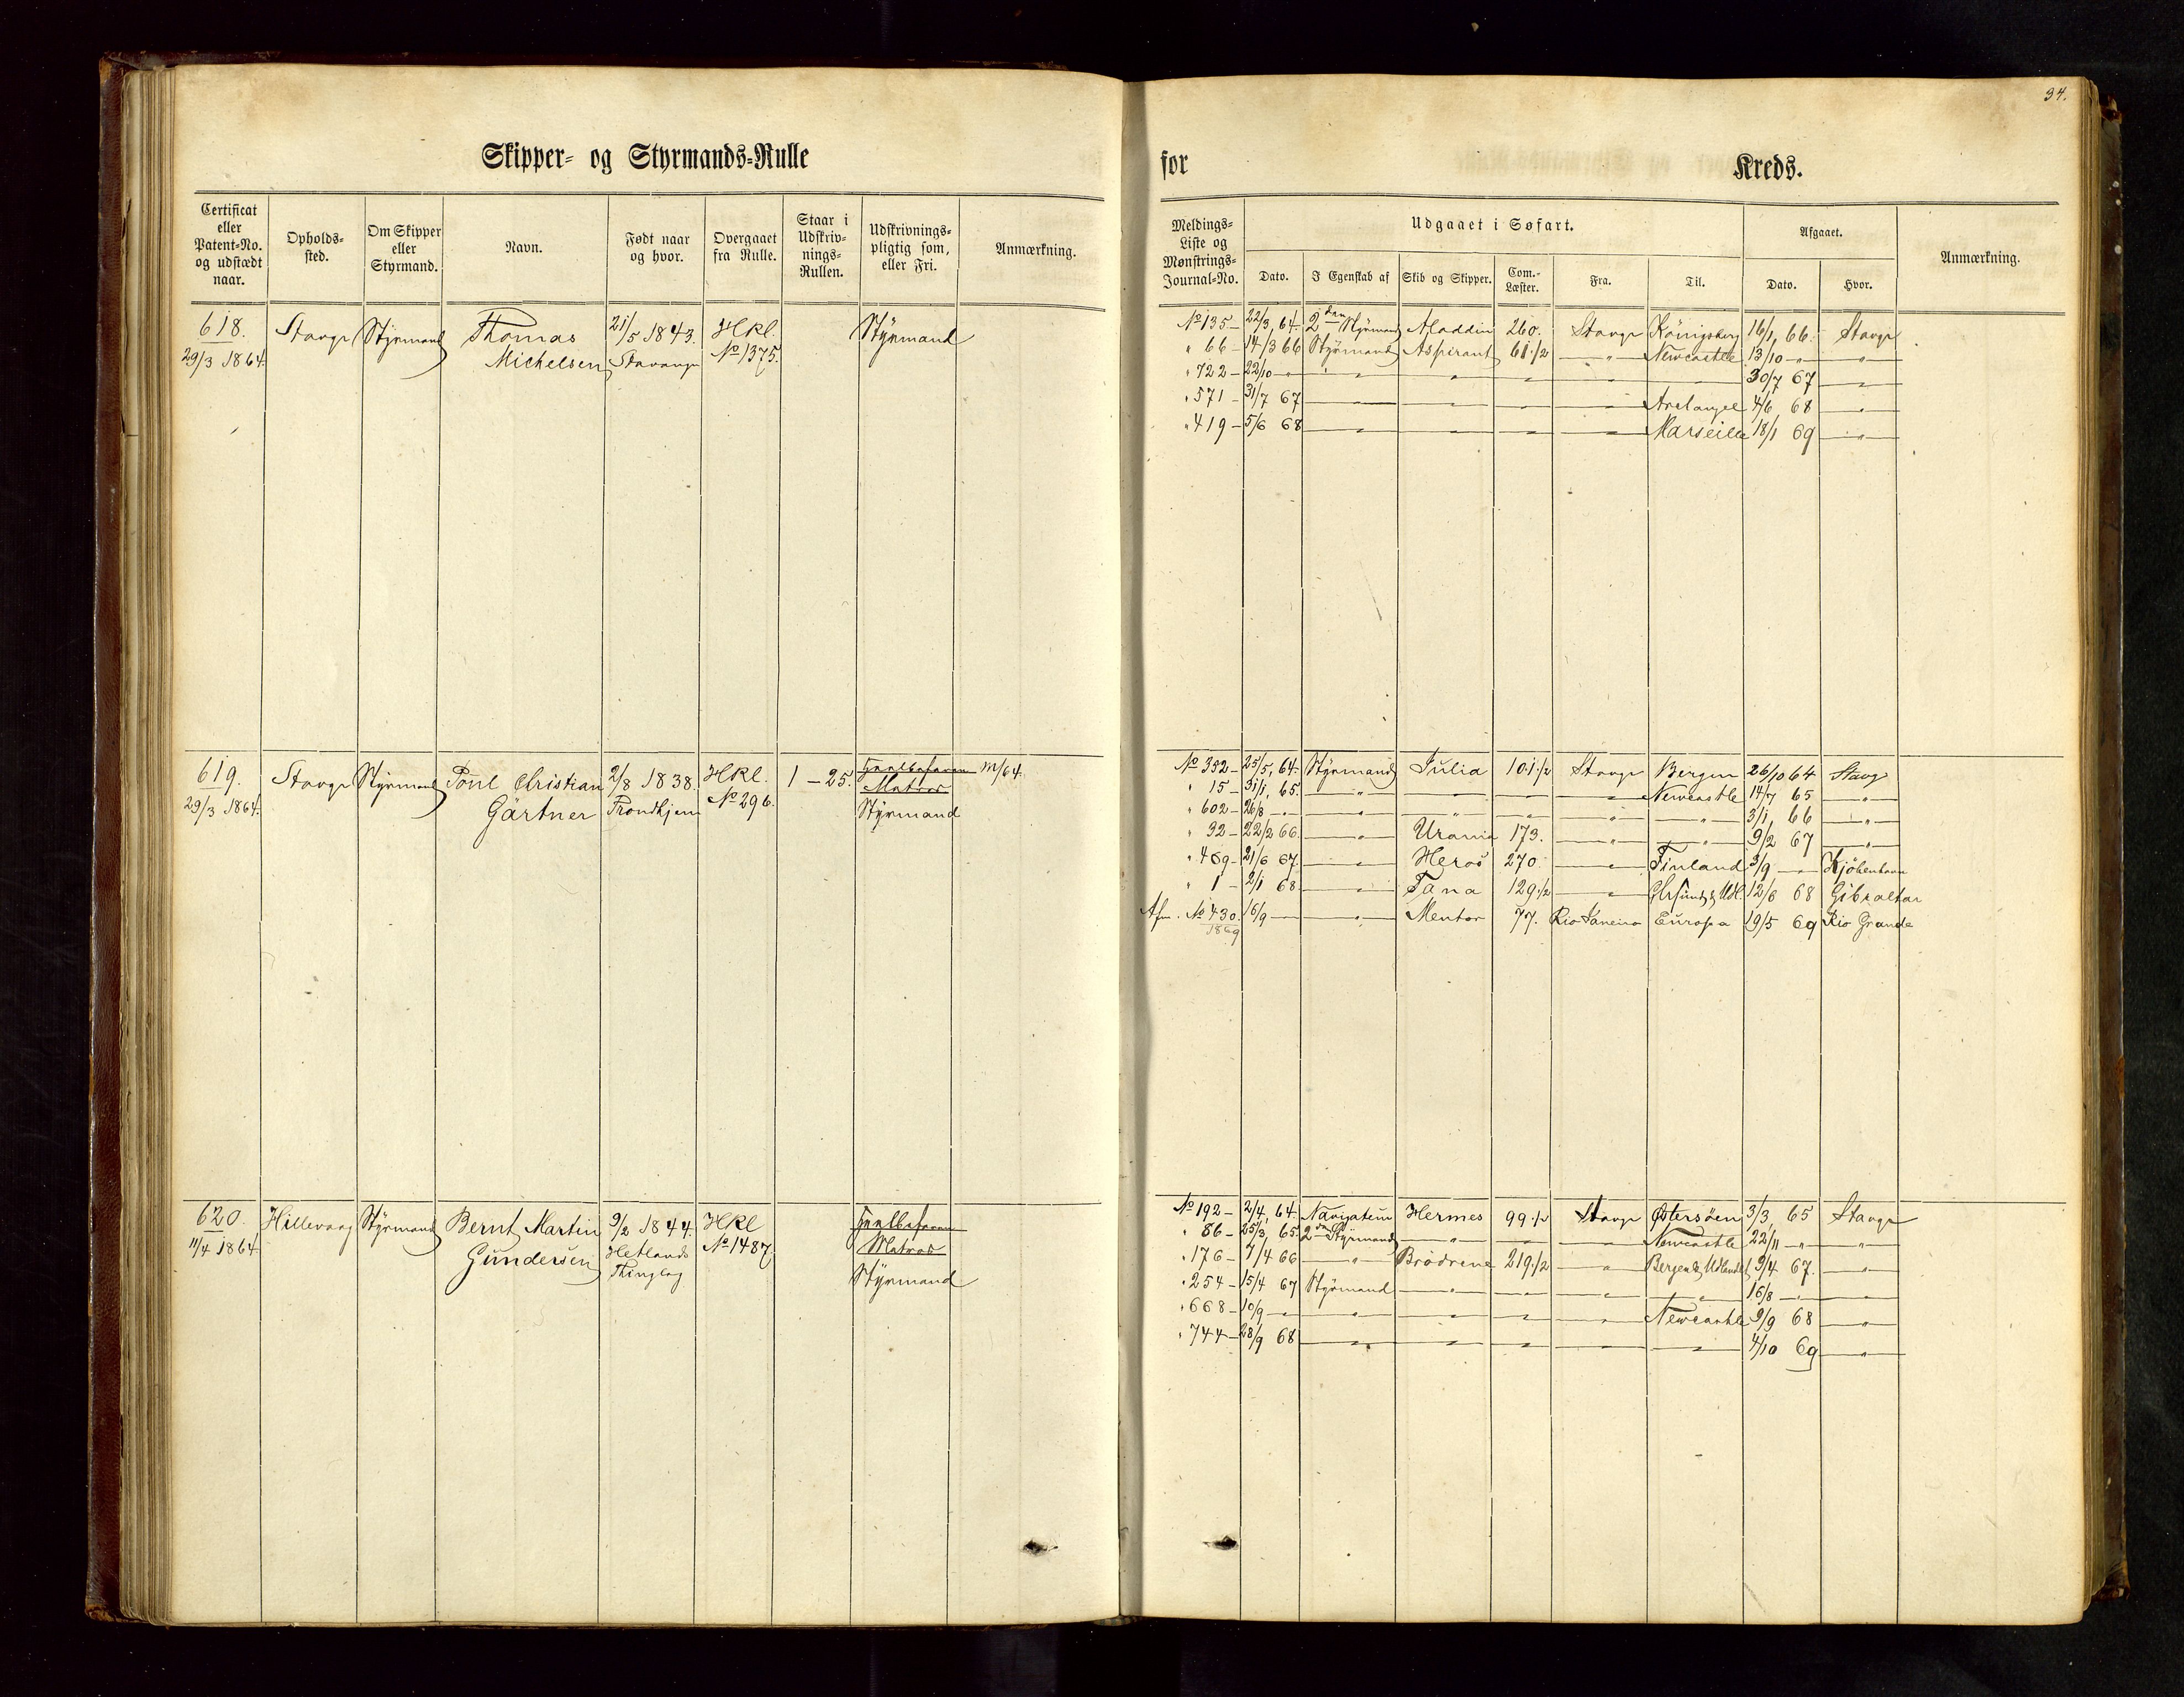 34.
Skipper- og Styrmands-Rulle
for Kreds.
Certificat eller Patent-No. og udstædt naar.
Opholds-sted.
Om Skipper eller Styrmand.
Navn.
Født naar og hvor.
Overgaaet fra Rulle.
Staar i Udskriv-nings-Rullen.
Udskrivnings-pligtig som, eller Fri.
Anmærkning.
Meldings-Liste og Mønstrings-Journal-No.
Udgaaet i Søfart.
Dato.
I Egenskab af
Skib og Skipper.
Com.-Læster.
Fra.
Til.
Afgaaet.
Dato.
Hvor.
Anmærkning.
618. Stavgr Styrmand Thomas 21/5 1843. HKl. Styrmand
29/3 1864. Michelsen Stavanger No 1375.
No 135 - 22/3, 64. 2den Styrmand Aladdin 260. Stavgr Königsberg 16/1, 66. Stavgr
" 66 - 14/3 66 Styrmand Aspirant 61 1/2 " Newcastle 13/10 - " "
" 722 - 22/10 - " " " " " 30/7 67 "
" 571 - 31/7 67 " " " " Archangel 4/6 68 "
" 419 - 5/6 68 " " " " Marseille 18/1 69 "
619. Stavgr Styrmand Poul Christian 2/8 1838. HKl. 1 - 25. m/64.
29/3 1864. Gärtner Trondhjem No 296. Matros
Styrmand
No 352 - 25/5, 64. Styrmand Julia 101 1/2 Stavgr Bergen 26/10 64 Stavgr
" 15 - 31/1, 65. " " " " Newcastle 14/7 65 "
" 602 - 26/8 - " " " " " " 3/1, 66 "
" 92 - 22/2 66. " Urania 173. " " 9/2 67 "
" 469 - 21/6 67. " Heros 270. " Finland 3/9 - " Kjöbenhavn
" 1 - 2/1 68 " Tana 129 1/2 " Udl. 12/6 68 Gibraltar
Afm. No 430. 16/9 - " Mentor 77. Rio Janeiro Europa 19/5 69 Rio Grande
1869
620. Hillevaag Styrmand Bernt Martin 9/2 1844. HKl
11/4 1864. Gundersen Hetlands No 1487. Matros
Thinglag Styrmand
No 192 - 2/4, 64. Navigateur Hermes 99 1/2 Stavgr Østersöen 3/3, 65 Stavgr
" 86 - 25/3, 65. 2den Styrmand " " " Newcastle 22/11 - " "
" 176 - 7/4 66 " Brödrene 219 1/2 " Bergen & Udlandet 9/4 67. "
" 254 - 15/4 67 Styrmand " " " " 16/8 - " "
" 668 - 10/9 - " " " " " Newcastle 9/9 68 "
" 744 - 28/9 68 " " " " " 4/10 69 "